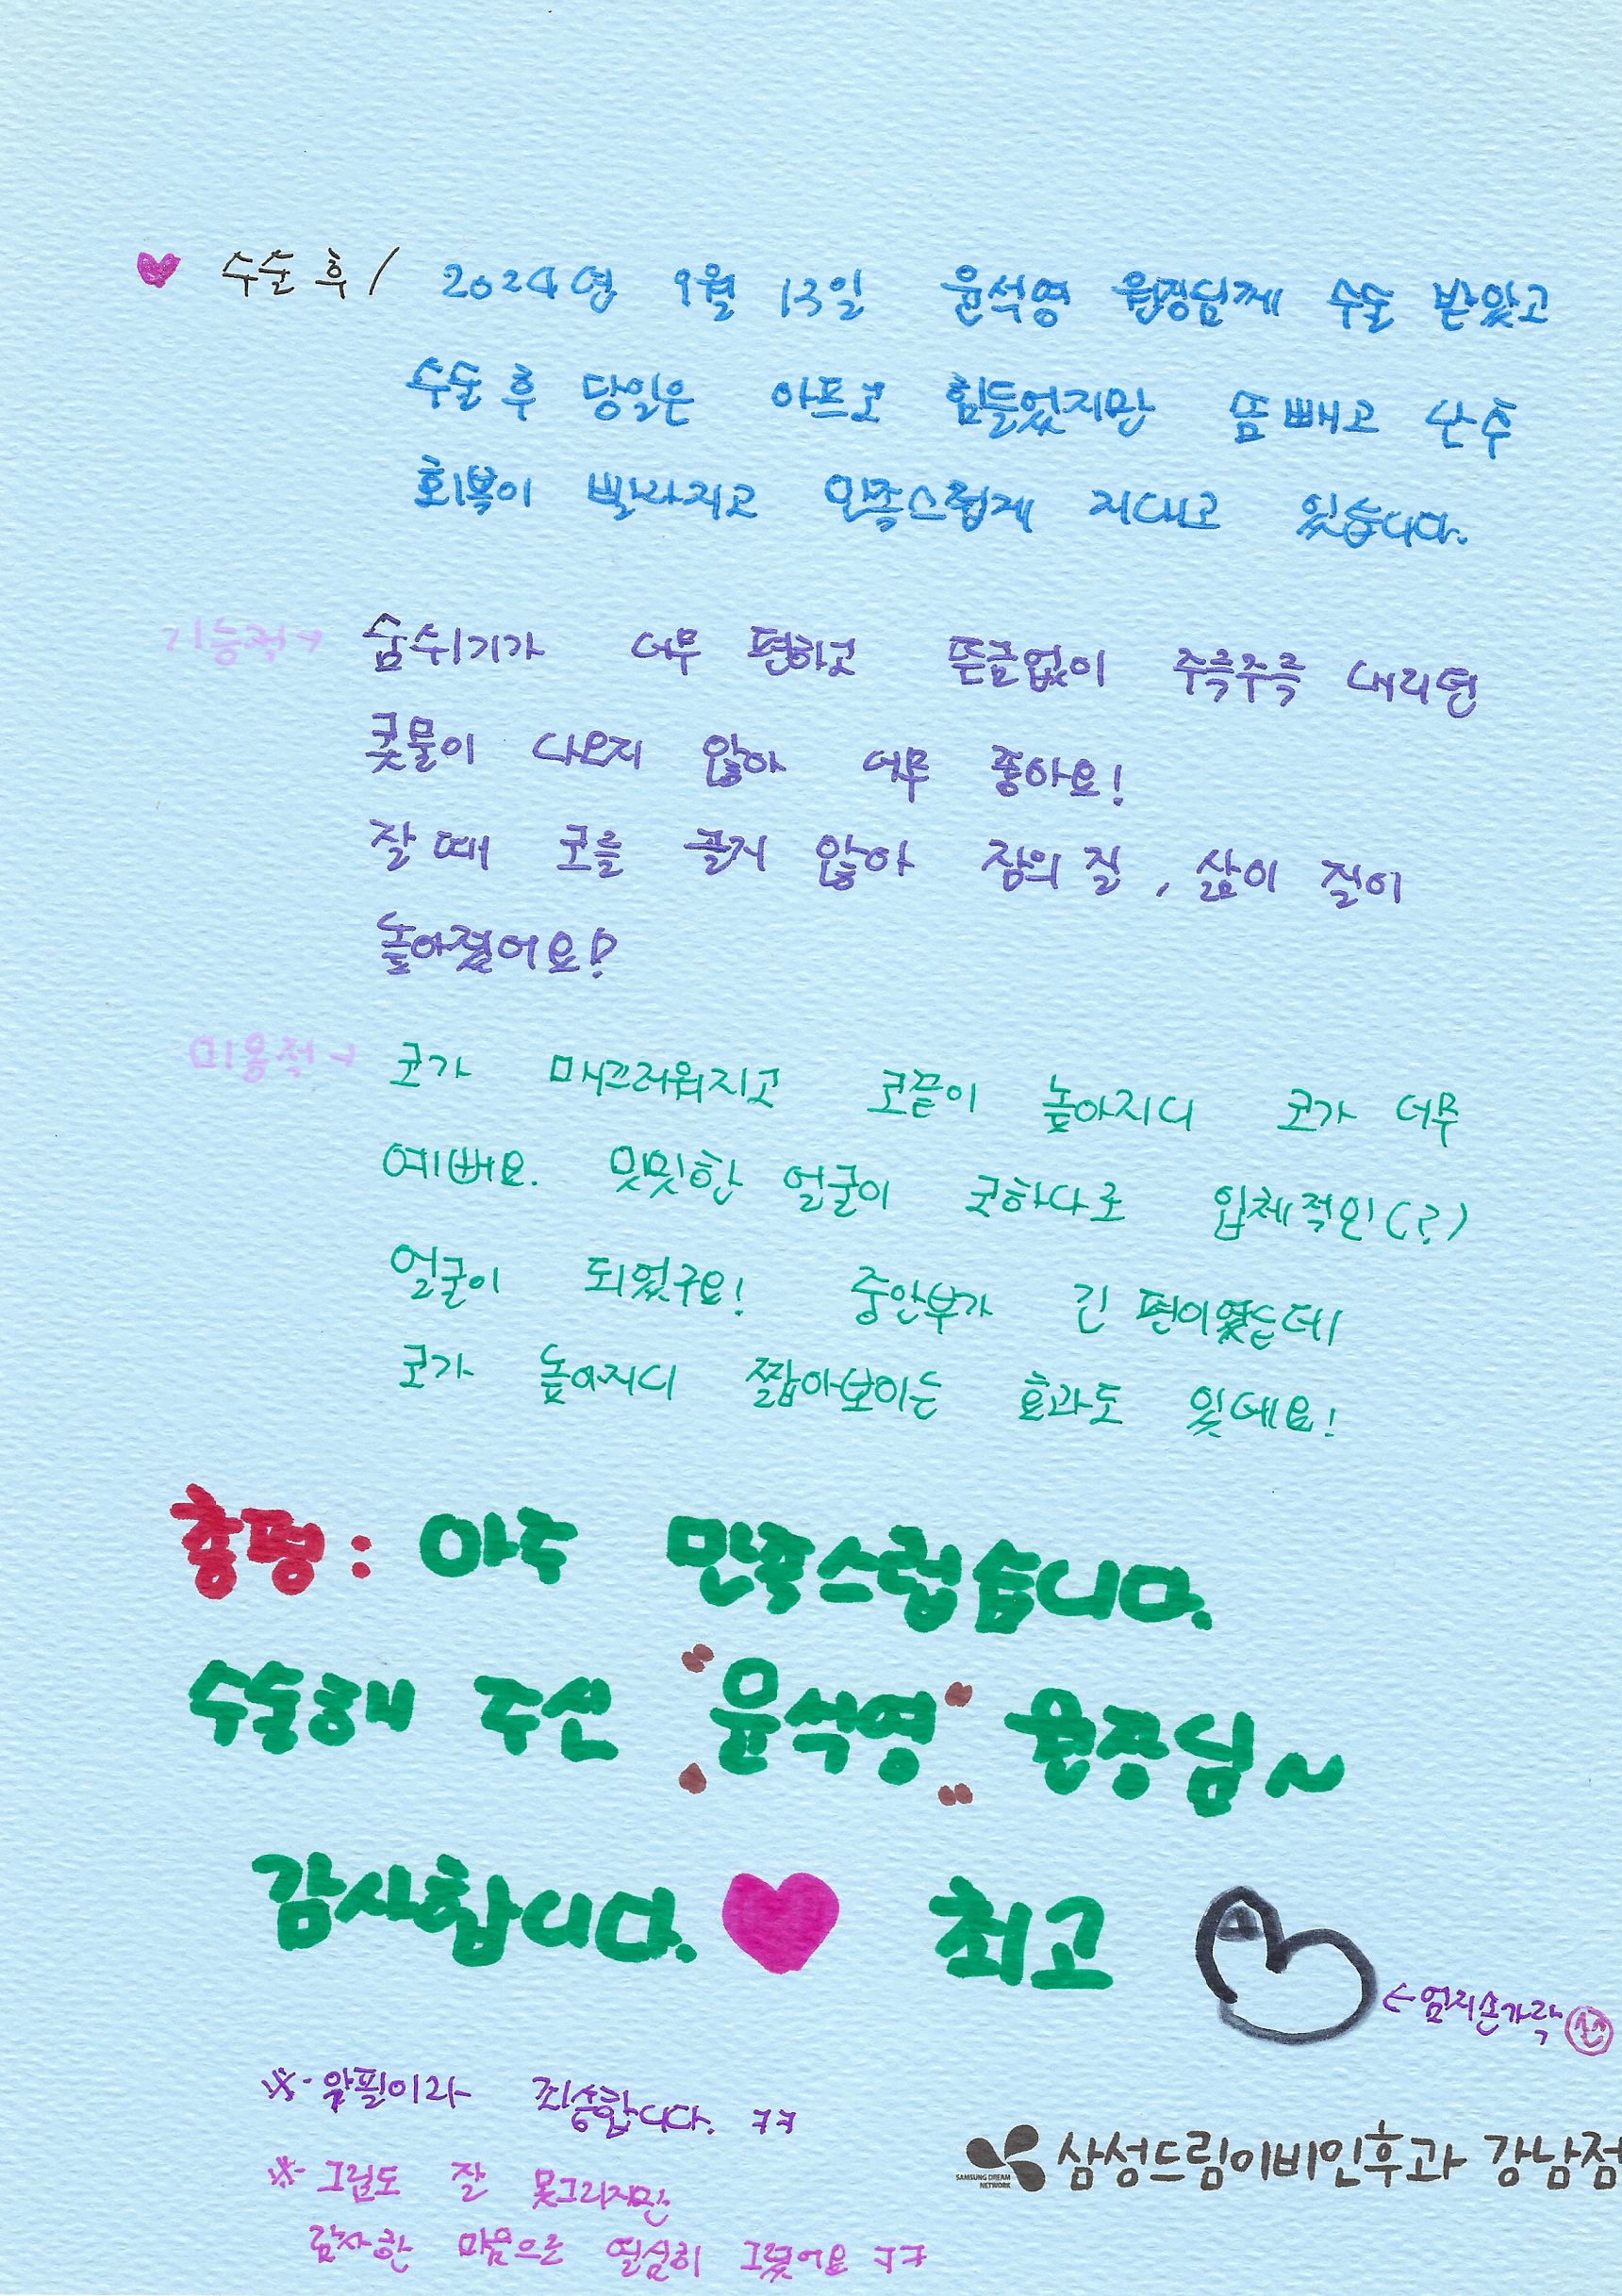 ♥ 수술 후 / 2024년 9월 13일 윤석영 원장님께 수술 받았고
수술 후 당일은 아프고 힘들었지만 뜸 빼고 난 후
회복이 빨라지고 만족스럽게 지내고 있습니다.
기능적→ 숨쉬기가 너무 편하고 뜬금없이 주륵주륵 내리던
콧물이 나오지 않아 너무 좋아요!
잘 때 코를 골지 않아 잠의 질, 삶이 질이
높아졌어요!
미용적→ 코가 매끄러워지고 코끝이 높아지니 코가 너무
예뻐요. 밋밋한 얼굴이 코하나로 입체적인(?)
얼굴이 되었구요! 중안부가 긴 편이였는데
코가 높아지니 짧아보이는 효과도 있네요!
총평: 아주 만족스럽습니다.
수술해 주신 윤석영 원장님~
감사합니다.♥ 최고
←엄지손가락
※ 악필이라 죄송합니다. ㅋㅋ
※ 그림도 잘 못그리지만
감사한 마음으로 열심히 그렸어요 ㅋㅋ
SAMSUNG DREAM NETWORK 삼성드림이비인후과 강남점